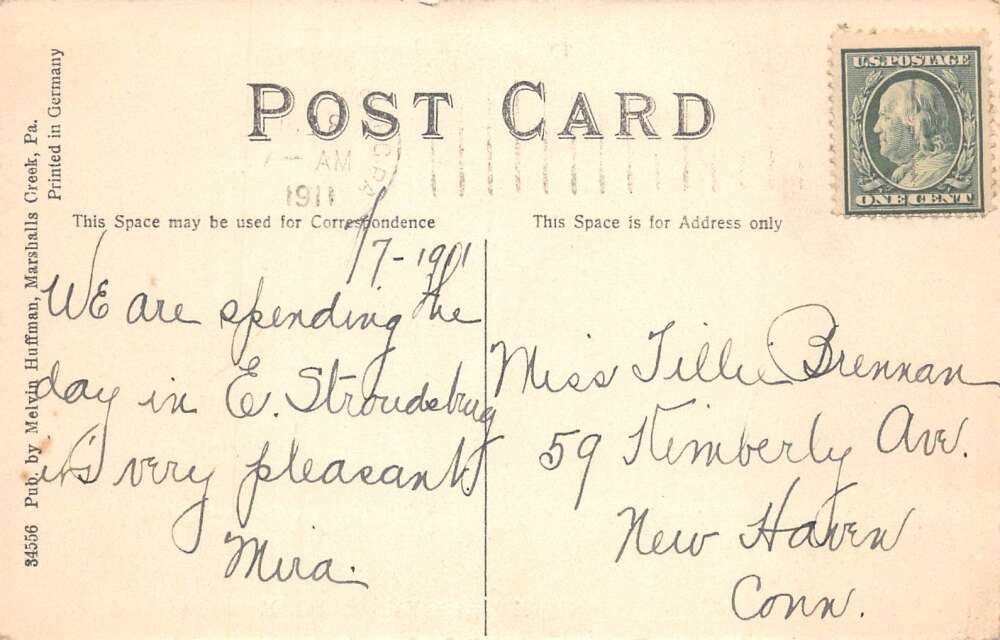 POST CARD
U.S. POSTAGE
ONE CENT
AM
1911
This Space may be used for Correspondence
This Space is for Address only
7-1901
WE are spending the
day in E. Stroudsburg
it's very pleasant.
Mira.
Miss Tillie Brennan
59 Kimberly Ave.
New Haven
Conn.
34556 Pub. by Melvin Huffman, Marshalls Creek, Pa.
Printed in Germany